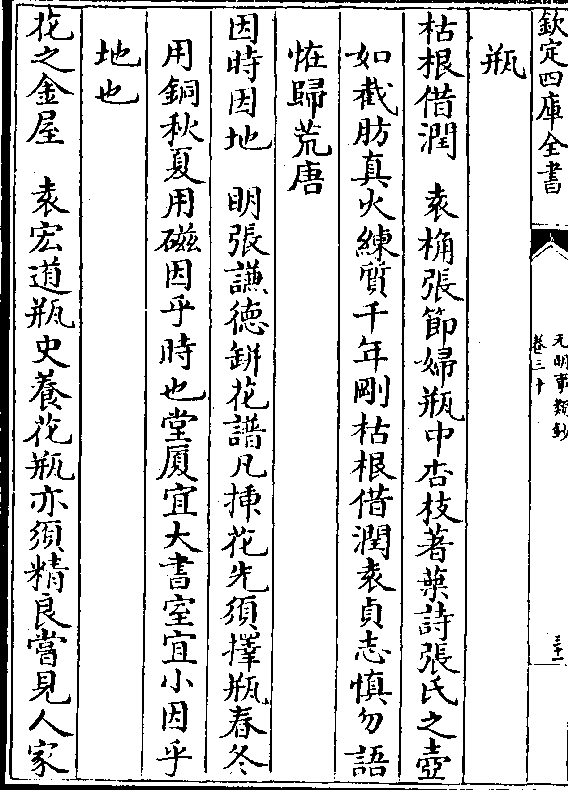 欽定四庫全書
元明事類鈔
卷三十
三十一
瓶
枯根借潤　袁桷張節婦瓶中杏枝著蘂詩張氏之壺
如截肪真火練質千年剛枯根借潤表貞志慎勿語
恠歸荒唐
因時因地　明張謙德缾花譜凡揷花先須擇瓶春冬
用銅秋夏用磁因乎時也堂厦宜大書室宜小因乎
地也
花之金屋　袁宏道瓶史養花瓶亦須精良嘗見人家